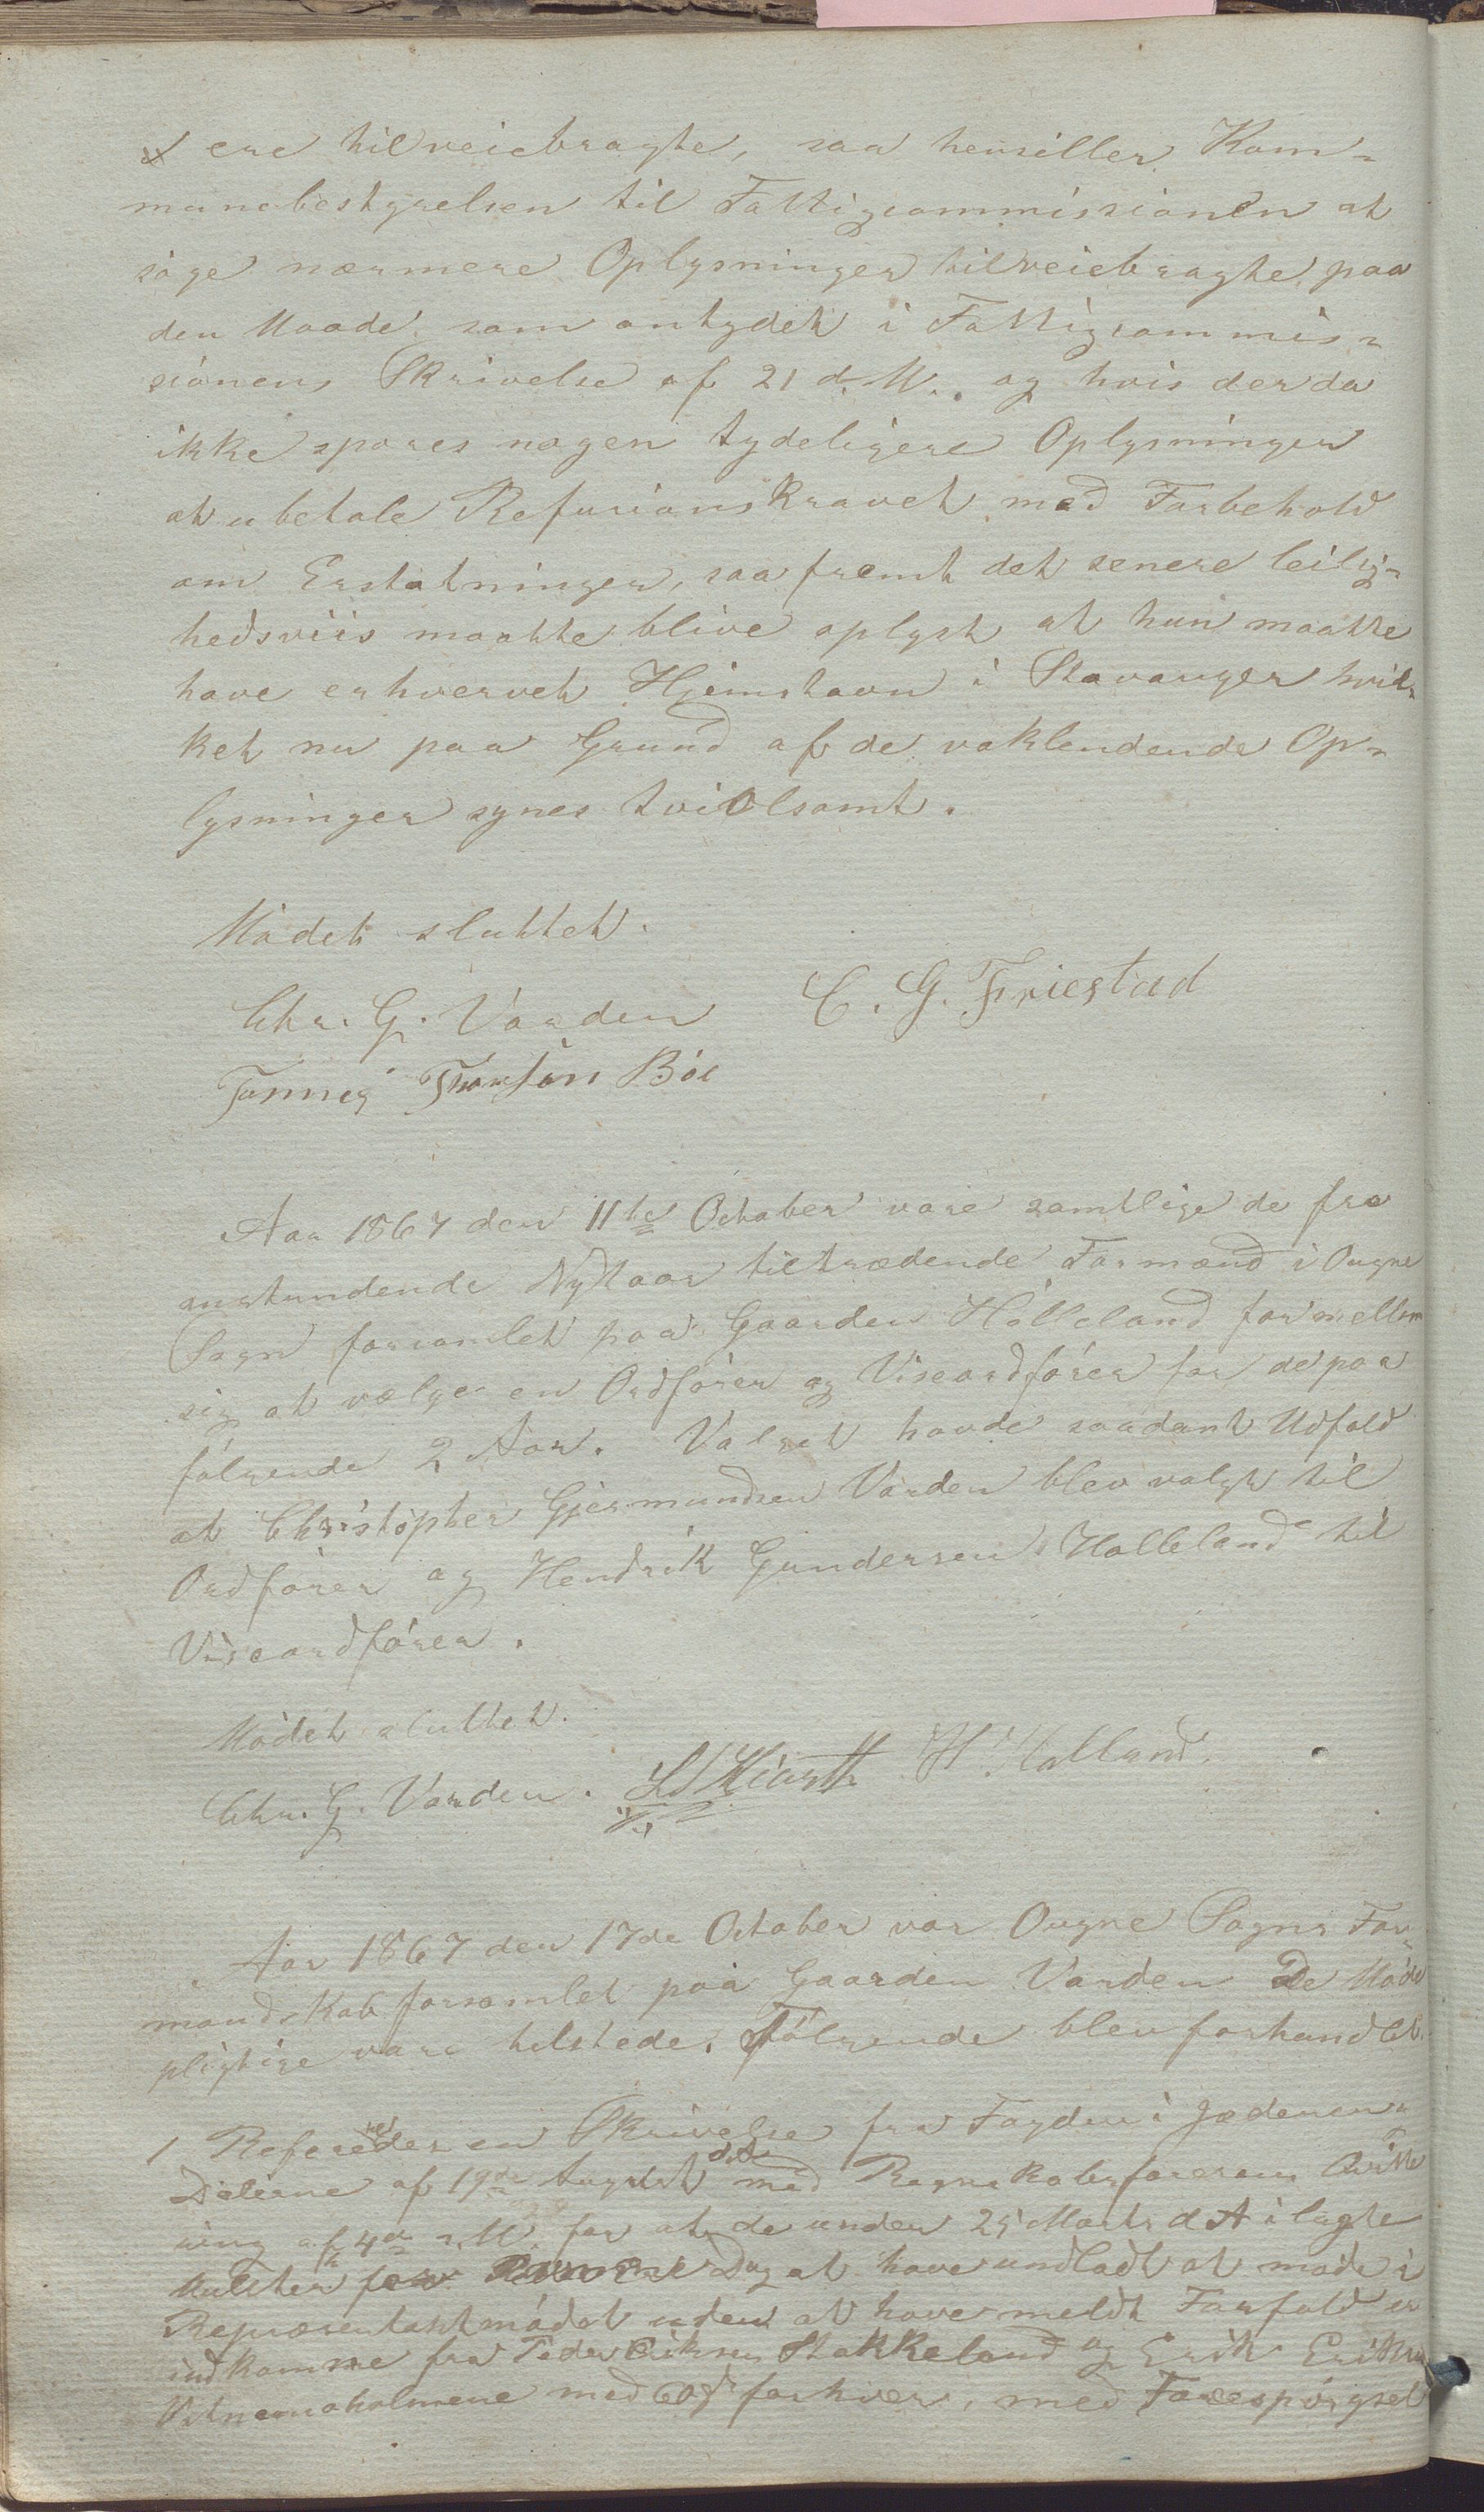 ere tilveiebragte, saa henstiller Kom-
munebestyrelsen til Fattigcommissionen at
söge nærmere Oplysninger tilveiebragte paa
den Maade som antydet i Fattigcommis-
sionens Skrivelse af 21 d. M. og hvis der da
ikke spores nogen tydeligere Oplysninger
at ubetale Refusionskravet med Forbehold
om Erstatninger, saafremt det senere leilig-
hedsviis maatte blive oplyst at hun maatte
have erhvervet Hjemstavn i Stavanger hvil-
ket nu paa Grund af de vaklendende Op-
lysninger synes tvivlsomt.
Mödet sluttet.
Chr. G. Varden C. G. Friestad
Tönnes Thorsön Böe
Aar 1867 den 11te October vare samtlige de fra
anstundende Nyttaar tiltrædende Formænd i Ougne
Sogn forsamlet paa Gaarden Hölleland for mellem
sig at vælge en Ordförer og Viseordförer for de paa
fölgende 2 Aar. Valget havde saadant Udfald
at Christopher Gjermundsen Varden blev valgt til
Ordförer og Hendrik Gundersen Holleland til
Viseordförer.
Mödet sluttet.
Chr. G. Varden. H. Holland.
Aar 1867 den 17de October var Ougne Sogns For-
mandskab forsamlet paa Gaarden Varden De Möde
pligtige vare tilstede. Fölgende blev forhandlet.
1 Refereredes en Skrivelse fra Fogden i Jæderen &
Dalerne af 19de August dA med Regnskabsförerens Qvitte
ring af 4de s. M. for at de under 25 Marts d A ilagte
Mulkter for Dag at have undladt at möde i
Repræsentantmödet uden at have meldt Forfald er
indkomne fra Peder Eriksen Stokkeland og Erik Eriksen
Odnemoholmene med 60 s forhver, med Forespörgsel